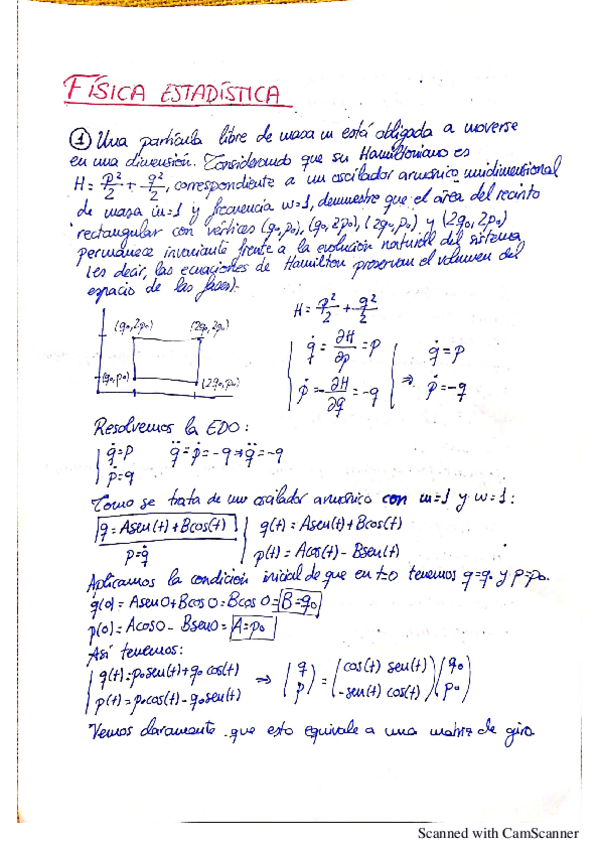 FÍSICA ESTADÍSTICA
① Una partícula libre de masa m está obligada a moverse
en una dimensión. Considerando que su Hamiltoniano es
H = p²/2 + q²/2, correspondiente a un oscilador armónico unidimensional
de masa m=1 y frecuencia w=1, demuestre que el área del recinto
rectangular con vértices (q₀,p₀), (q₀,2p₀), (2q₀,p₀) y (2q₀,2p₀)
permanece invariante frente a la evolución natural del sistema
(es decir, las ecuaciones de Hamilton preservan el volumen del
espacio de las fases).
H = p²/2 + q²/2
(q₀,2p₀) (2q₀,2p₀)
(q₀,p₀) (2q₀,p₀)
q̇ = ∂H/∂p = p
ṗ = -∂H/∂q = -q
⇒ q̇ = p
ṗ = -q
Resolvemos la EDO:
q̇ = p q̈ = ṗ = -q ⇒ q̈ = -q
ṗ = q
Como se trata de un oscilador armónico con m=1 y w=1:
q = Asen(t) + Bcos(t) q(t) = Asen(t) + Bcos(t)
p = q̇ p(t) = Acos(t) - Bsen(t)
Aplicamos la condición inicial de que en t=0 tenemos q=q₀ y p=p₀.
q(0) = Asen0 + Bcos0 = Bcos0 = B = q₀
p(0) = Acos0 - Bsen0 = A = p₀
Así tenemos:
q(t) = p₀sen(t) + q₀cos(t) ⇒ (q p) = (cos(t) sen(t) -sen(t) cos(t)) (q₀ p₀)
p(t) = p₀cos(t) - q₀sen(t)
Vemos claramente que esto equivale a una matriz de giro
Scanned with CamScanner